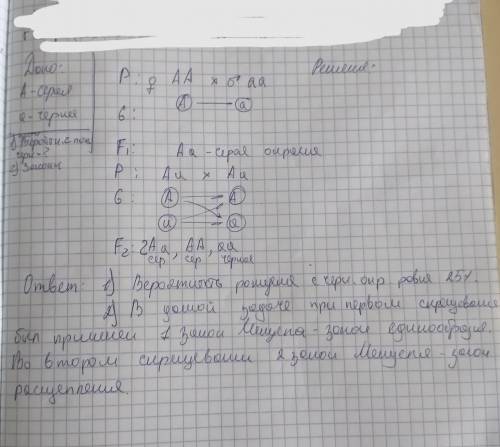 Дано: Решение:
А - серая
а - черная
2) Законы
P: ♀ AA × ♂ aa
G: A a
F₁: Aa - серая
P: Aa × Aa
G: A A
a a
F₂: 2Aa, AA, aa
сер. сер. черная
Ответ: 1) Вероятность рождения с черн. окр. равна 25%.
2) В данной задаче при первом скрещивании
был применен 1 закон Менделя - закон единообразия.
Во втором скрещивании 2 закон Менделя - закон
расщепления.